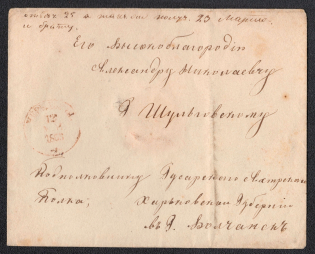 получ. 23 Марта
и брату
Его Высокоблагородію
Александру Николаевичу
Г Шульговскому
Подполковнику Гусарскаго Ахтырскаго
Полка;
Харьковской Губерніи
въ Г. Волчанскъ